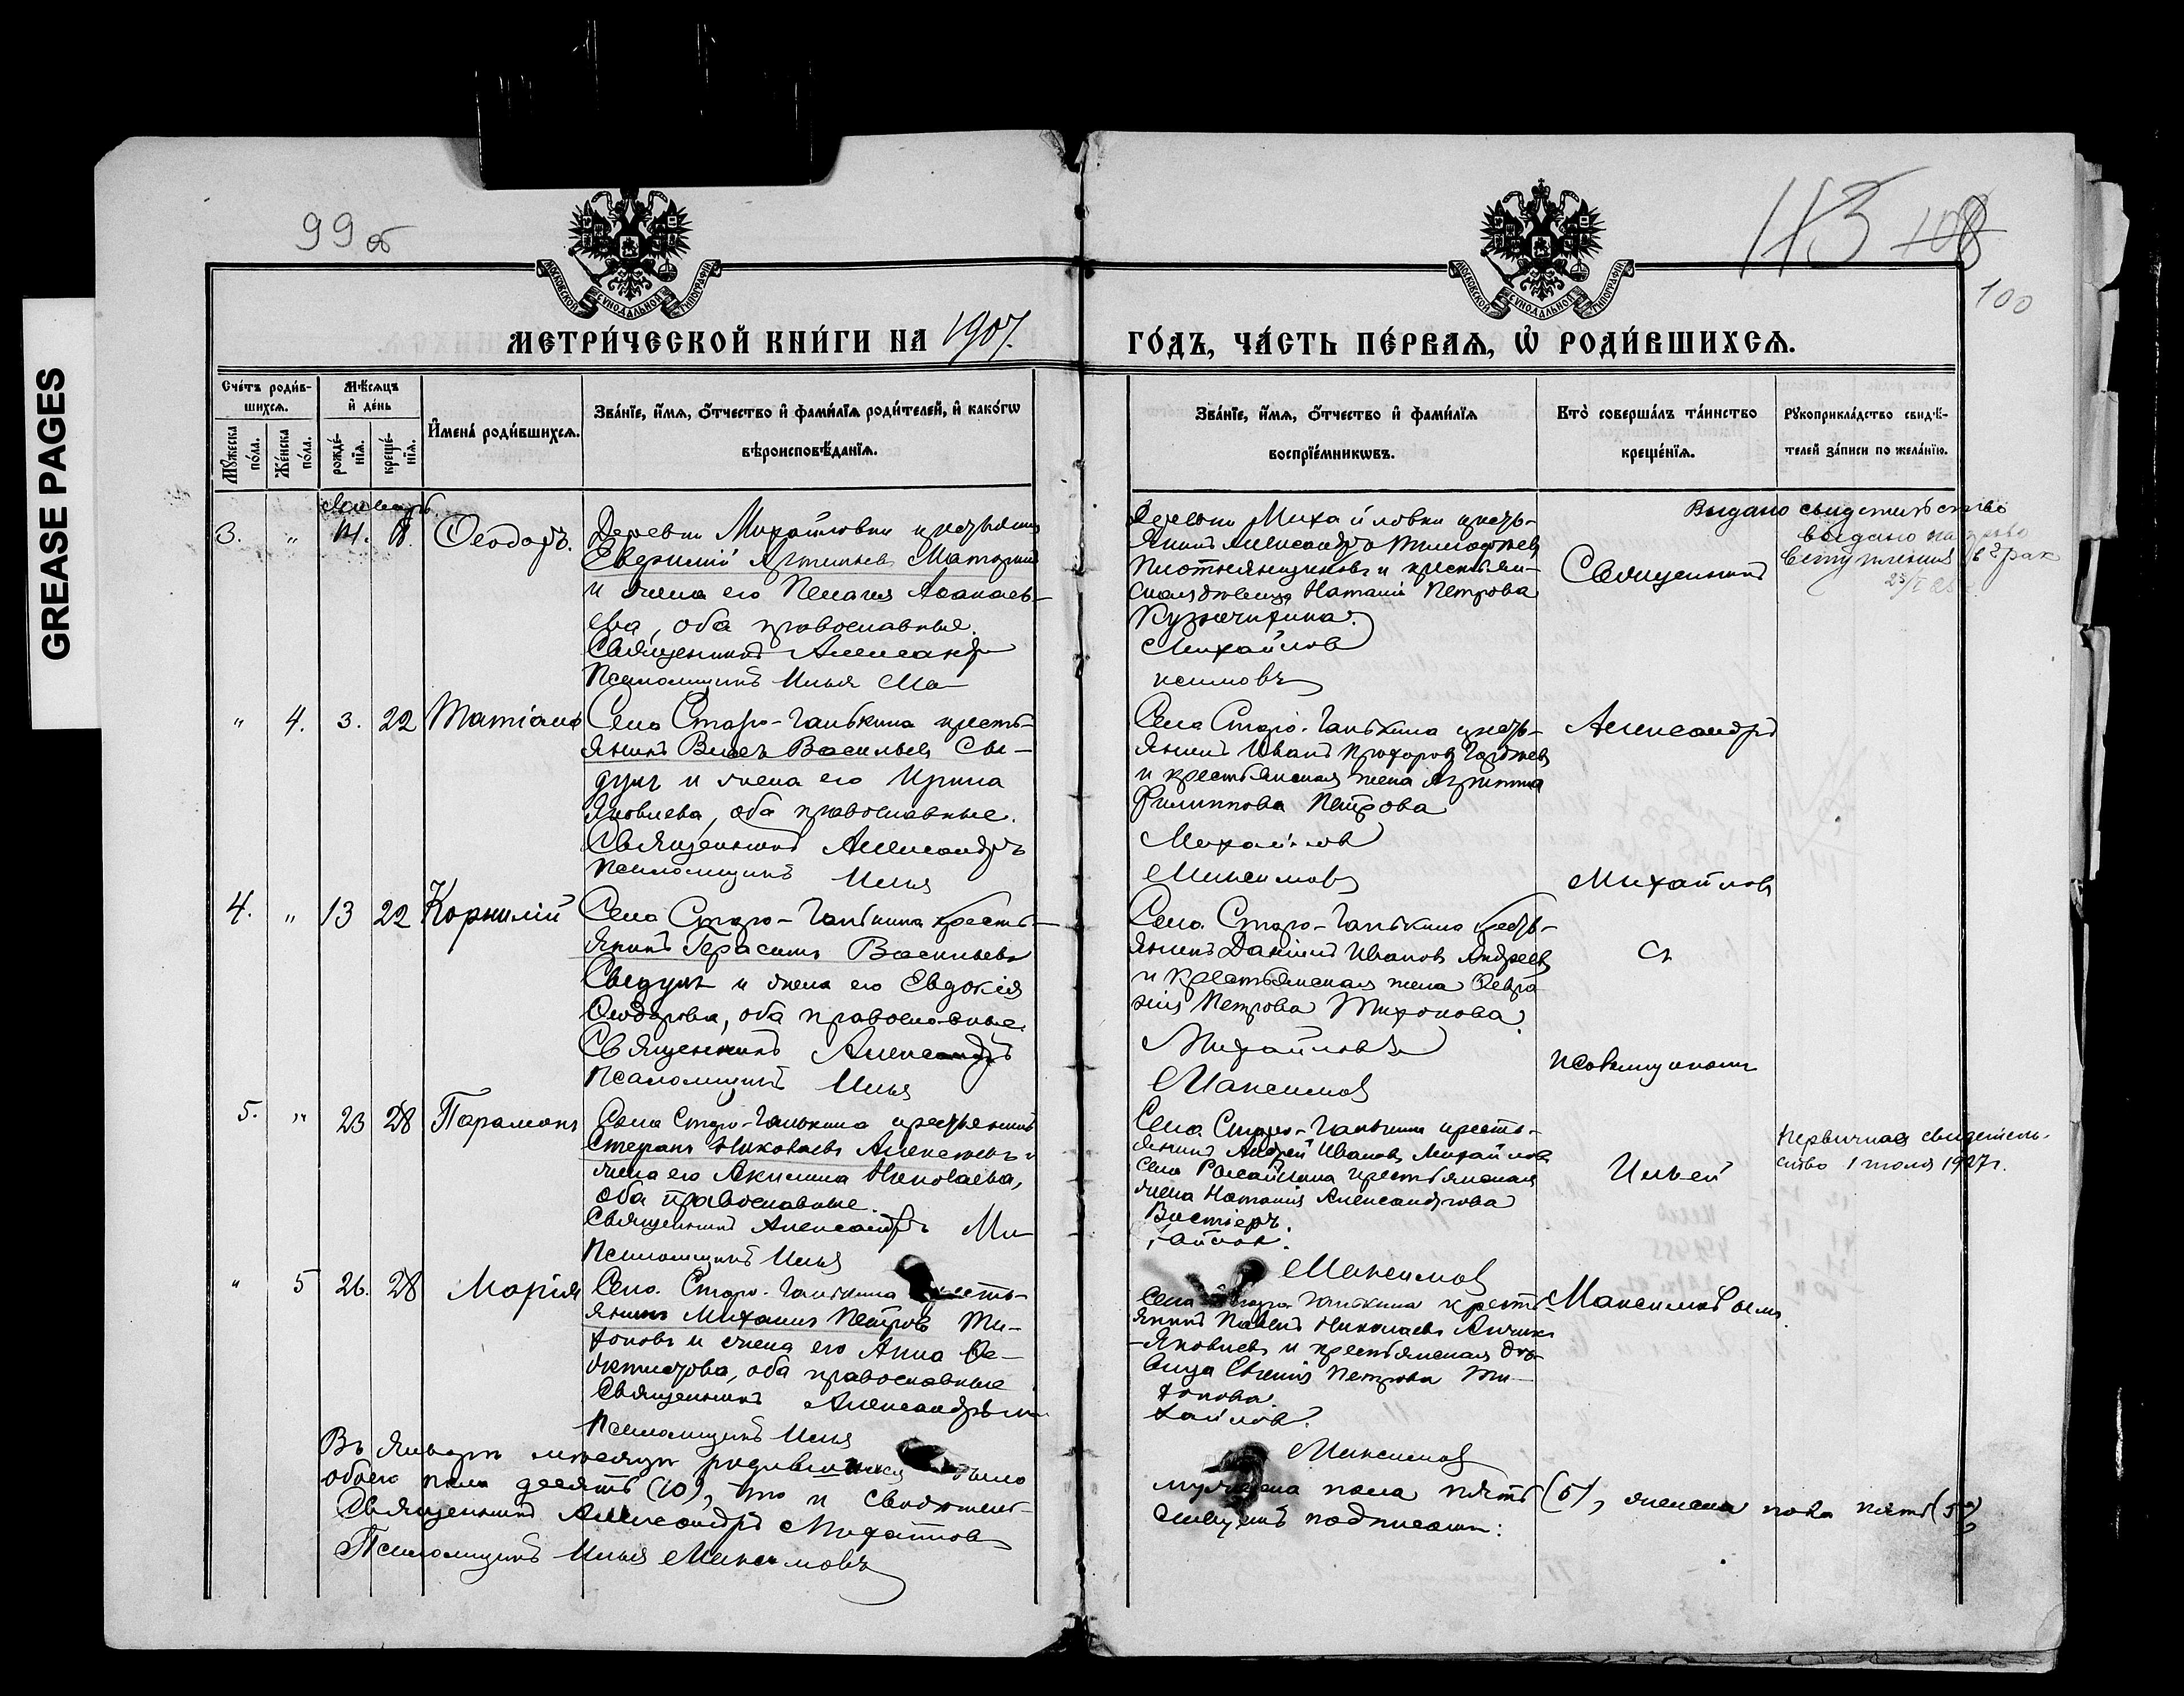 GREASE PAGES
99 об
113 108
100
МОСКОВСКОЙ СѴНОДАЛЬНОЙ ТИПОГРАФІИ
МОСКОВСКОЙ СѴНОДАЛЬНОЙ ТИПОГРАФІИ
МЕТРИ́ЧЕСКОЙ КНИ́ГИ НА 1907.
ГО́ДЪ, ЧА́СТЬ ПЕ́РВАѦ, Ѡ҆ РОДИ́ВШИХСѦ.
Сче́тъ роди́в-
шихсѧ.
Мꙋ́жеска по́ла.
Же́нска по́ла.
Мѣ́сѧцъ
и҆ де́нь
рожде́-
нїѧ.
креще́-
нїѧ.
И҆мена̀ роди́вшихсѧ.
Зва́нїе, и҆́мѧ, ѻ҆́тчество и҆ фами́лїѧ роди́телей, и҆ како́гѡ
вѣроисповѣ́данїѧ.
Зва́нїе, и҆́мѧ, ѻ҆́тчество и҆ фами́лїѧ
воспрїе́мникѡвъ.
Кто̀ соверша́лъ та́инство
креще́нїѧ.
Рꙋкоприкла́дство свидѣ́-
телей за́писи по жела́нїю.
Январь
3. " 14. 18. Ѳеодоръ.
Деревни Михайловки крестьянинъ
и жена его Пелагія
ева, оба православные.
Священникъ Александръ
Псаломщикъ Илья Ма-
Деревни Михайловки кресть-
янинъ Александръ
и крестьян-
ская дѣвица Наталія Петрова
Михайловъ
ксимовъ
Священникъ
Выдано свидетельство
выдано на право
вступления в брак
" 4. 3. 22 Татіана
Села Старо-Ганькина кресть-
янинъ Васильевъ Сы-
и жена его Ирина
Яковлева, оба православные.
Священникъ Александръ
Псаломщикъ Илья
Села Старо-Ганькина кресть-
янинъ Иванъ Прохоровъ
и крестьянская жена Агрипина
Филиппова Петрова
Михайловъ
Максимовъ
Александръ
Михайловъ
4. " 13 22 Корнилій
Села Старо-Ганькина кресть-
янинъ Герасимъ Васильевъ
и жена его Евдокія
Ѳеодорова, оба православные.
Священникъ Александръ
Псаломщикъ Илья
Села Старо-Ганькина кресть-
янинъ Даніилъ Ивановъ Андреевъ
и крестьянская жена Ѳевро-
нія Петрова Тихонова.
Михайловъ
Максимовъ
съ
псаломщикомъ
5. " 23 28 Парамонъ
Села Старо-Ганькина крестьянинъ
Степанъ Николаевъ Алексѣевъ и
жена его Акилина Николаева,
оба православные.
Священникъ Александръ Ми-
Псаломщикъ Илья
Села Старо-Ганькина кресть-
янинъ Андрей Ивановъ Михайловъ
села крестьянская
жена Наталія Александрова
хайловъ.
Максимовъ
Ильей
Первичное свидетель-
ство 1 июля 1927 г.
" 5 26. 28 Марія
Села Старо-Ганькина кресть-
янинъ Михаилъ Петровъ Ти-
хоновъ и жена его Анна Ѳе-
октистова, оба православные
Священникъ Александръ Ми-
Псаломщикъ Илья
Села Старо-Ганькина кресть-
янинъ Павелъ Николаевъ
-Яковлевъ и крестьянская дѣ-
вица Евгенія Петрова Ти-
хонова.
хайловъ.
Максимовъ
Максимовымъ.
Въ Январѣ мѣсяцѣ родившихся было
обоего пола десять (10), что и свидѣтель-
Священникъ Александръ Михайловъ
Псаломщикъ Илья Максимовъ
мужеска пола пять (5), женска пола пять (5)
ствуемъ подписомъ: